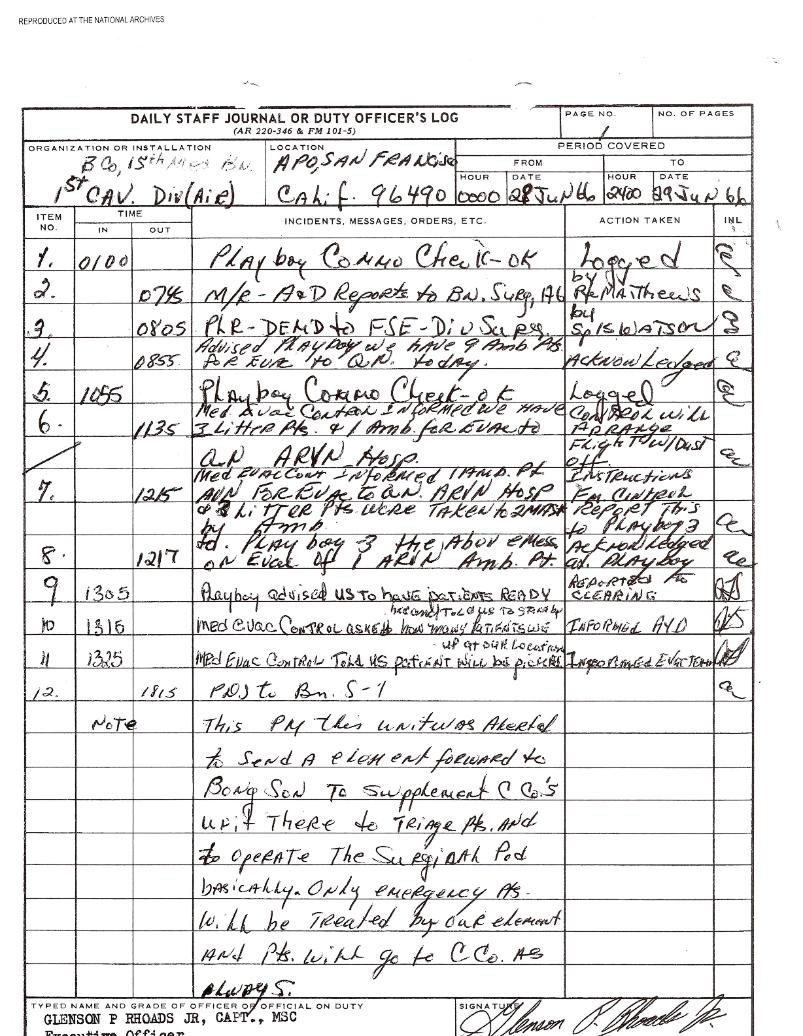 REPRODUCED AT THE NATIONAL ARCHIVES
DAILY STAFF JOURNAL OR DUTY OFFICER'S LOG
(AR 220-346 & FM 101-5)
PAGE NO.
1
NO. OF PAGES
ORGANIZATION OR INSTALLATION
B Co, 15th Med Bn.
1st CAV. Div (Air)
LOCATION
APO, SAN FRANCISCO
Calif. 96490
PERIOD COVERED
FROM
TO
HOUR
DATE
HOUR
DATE
0000
28 Jun 66
2400
29 Jun 66
ITEM NO.
TIME
IN
OUT
INCIDENTS, MESSAGES, ORDERS, ETC.
ACTION TAKEN
INL
1. 0100 Playboy Commo Check-OK Logged
2. 0745 M/R - A&D Reports to Bn. Surg, by Matthews
3. 0805 to FSE - Div Surg. by Sp/5 Watson
4. 0855 Advised Playboy we have 9 Amb Pts
for Evac to Q.N. today. Acknowledged
5. 1055 Playboy Commo Check-OK Logged
6. 1135 Med Evac Control Informed we have
3 Litter Pts. & 1 Amb. for Evac to
Q.N. ARVN Hosp.
Control will
Arrange
Flight w/Dust
off.
7. 1215 Med Evac Cont Informed 1 Amb. Pt
AVN for Evac to Q.N. ARVN Hosp
& 3 Litter Pts were taken to 2 MASH
by Amb.
Instructions
Fm. Control
Report this
to Playboy 3
8. 1217 td. Playboy 3 the Above Mess.
on Evac of 1 ARVN Amb. Pt.
Acknowledged
Playboy
9 1305 Playboy advised us to have patients ready
Reported to
Clearing
10 1316 Med Evac Control asked how many patients we
had and told us to stand by
Informed A&D
11 1325 Med Evac Control told us patient will be picked
up at our location
Informed Evac Team
12. 1815 to Bn. S-1
Note This PM this unit was Alerted
to send a element forward to
Bong Son To Supplement C Co.'s
unit there to Triage Pts. and
to operate The Surgical Pod
basically. Only emergency Pts.
will be Treated by our element
and Pts. will go to C Co. as
always.
TYPED NAME AND GRADE OF OFFICER OR OFFICIAL ON DUTY
GLENSON P RHOADS JR, CAPT., MSC
Executive Officer
SIGNATURE
Glenson P. Rhoads Jr